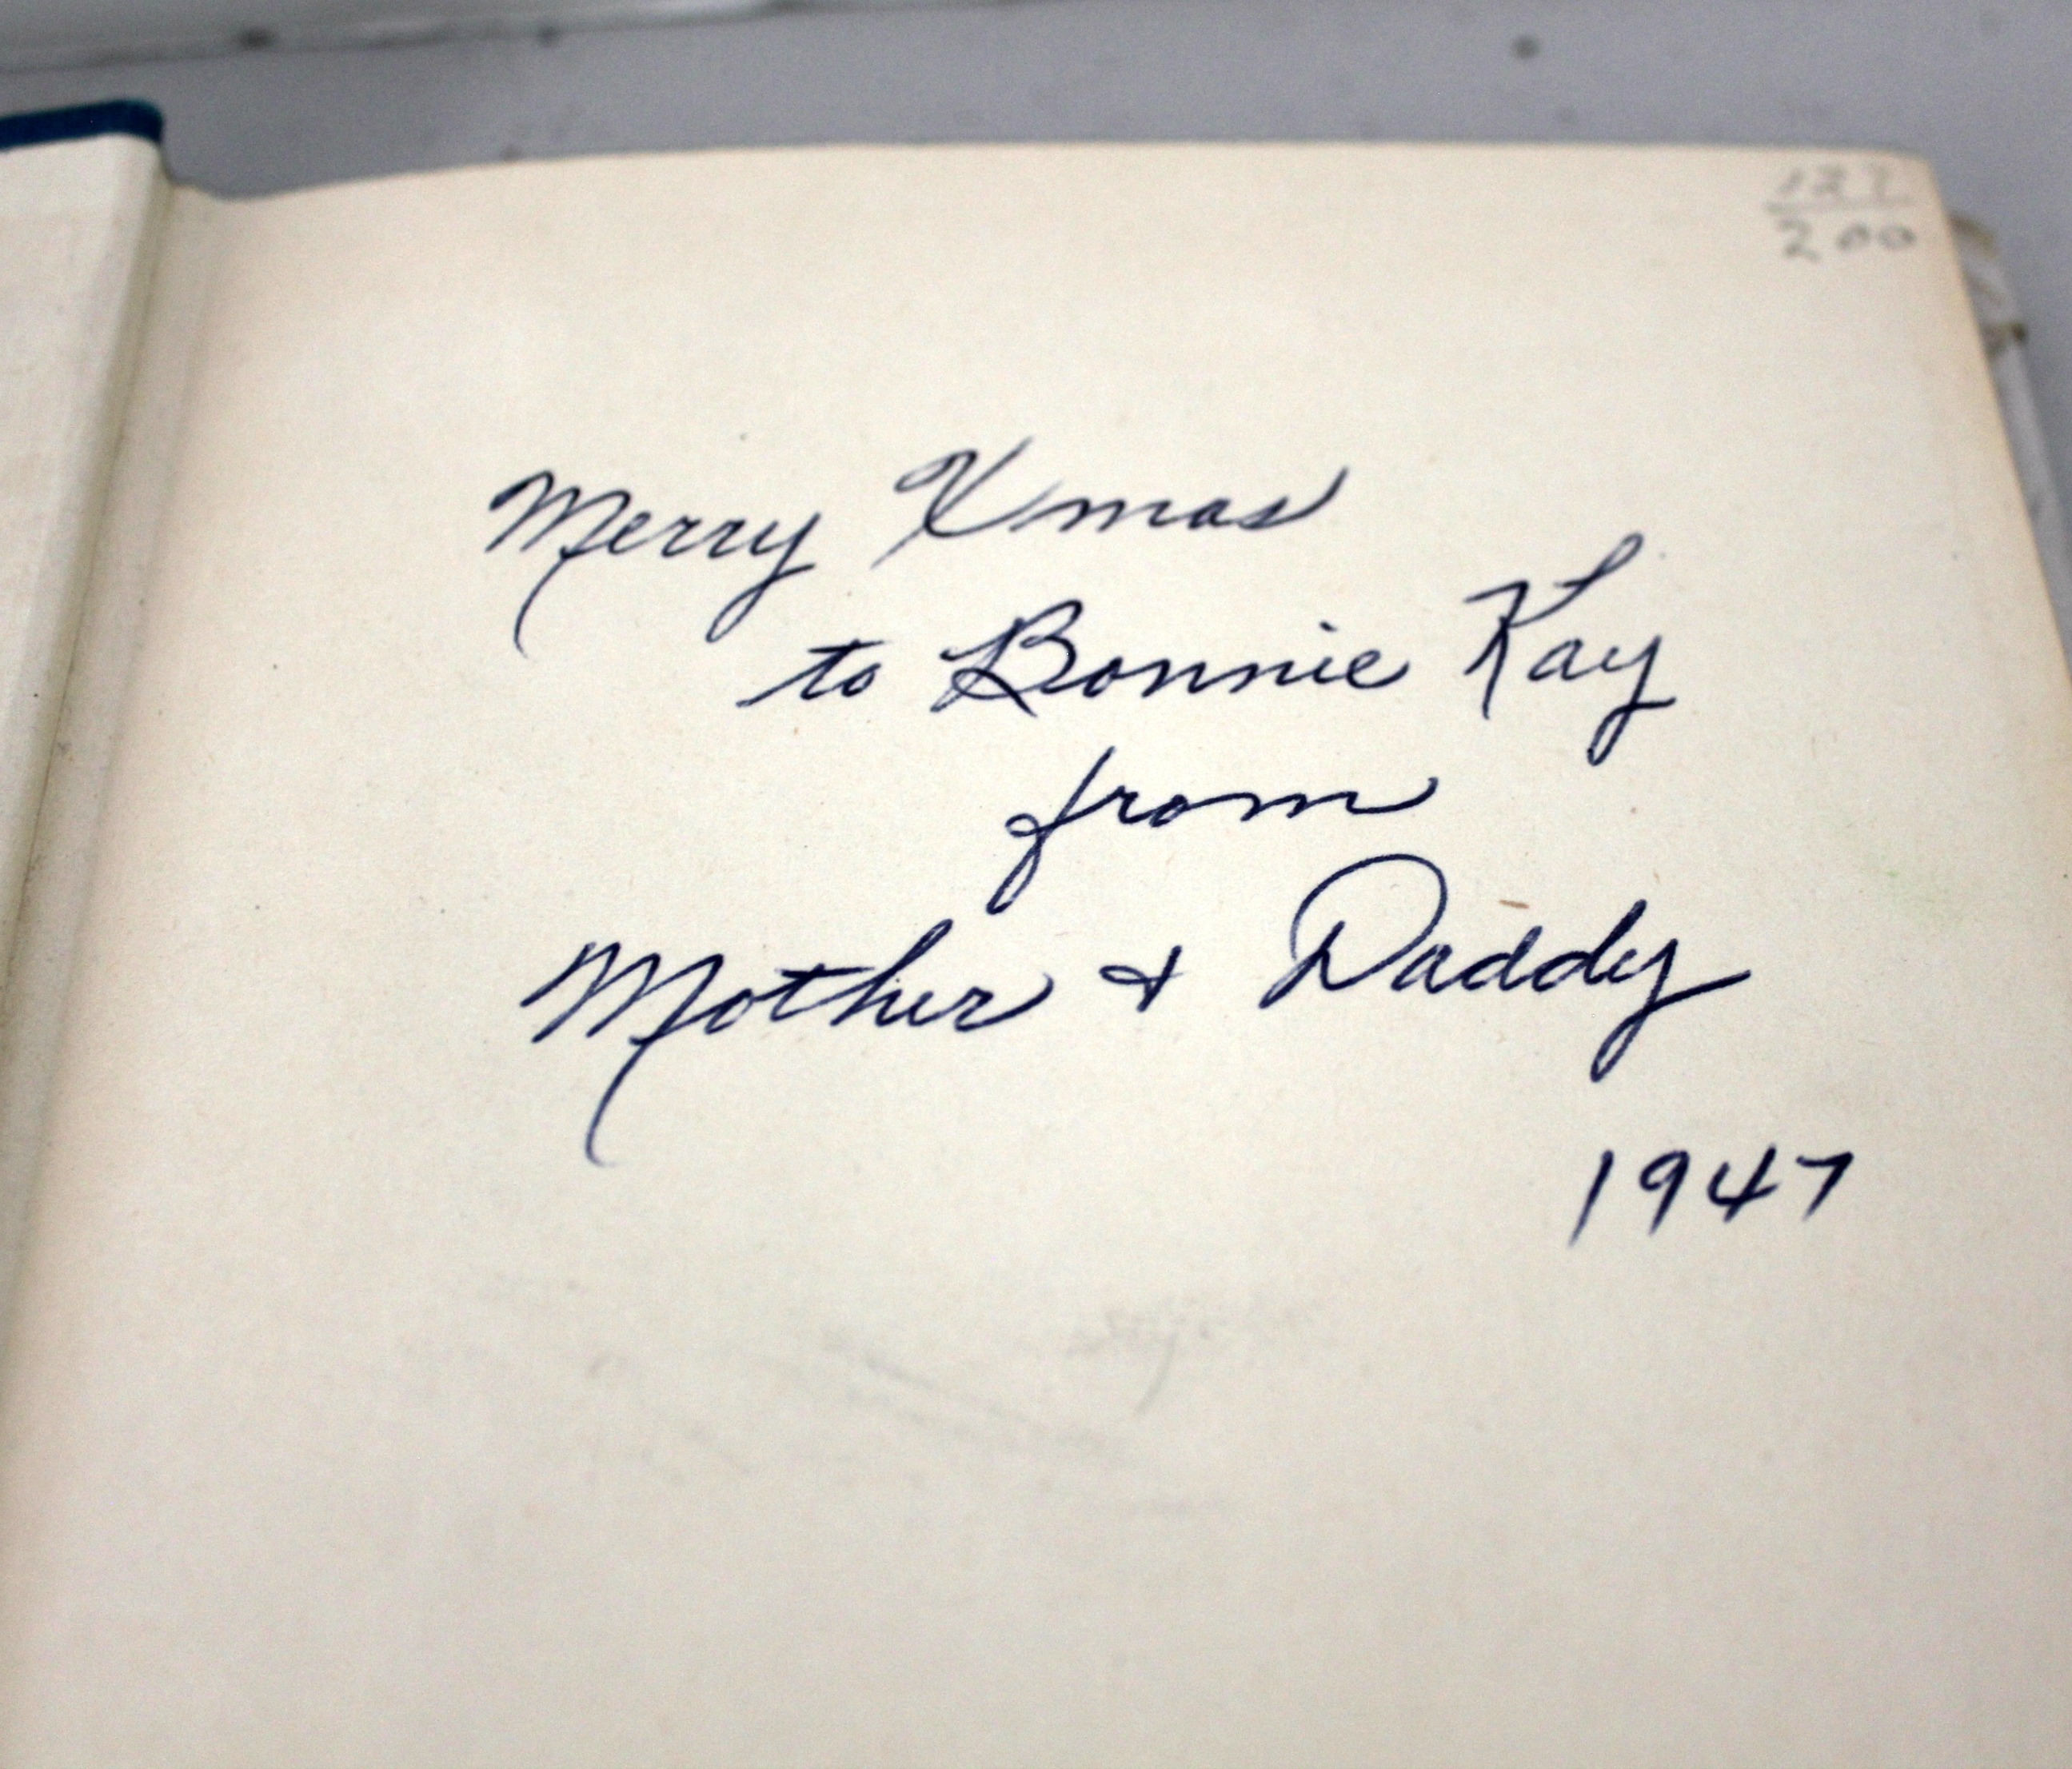 137
200
Merry Xmas
to Bonnie Kay
from
Mother + Daddy
1947